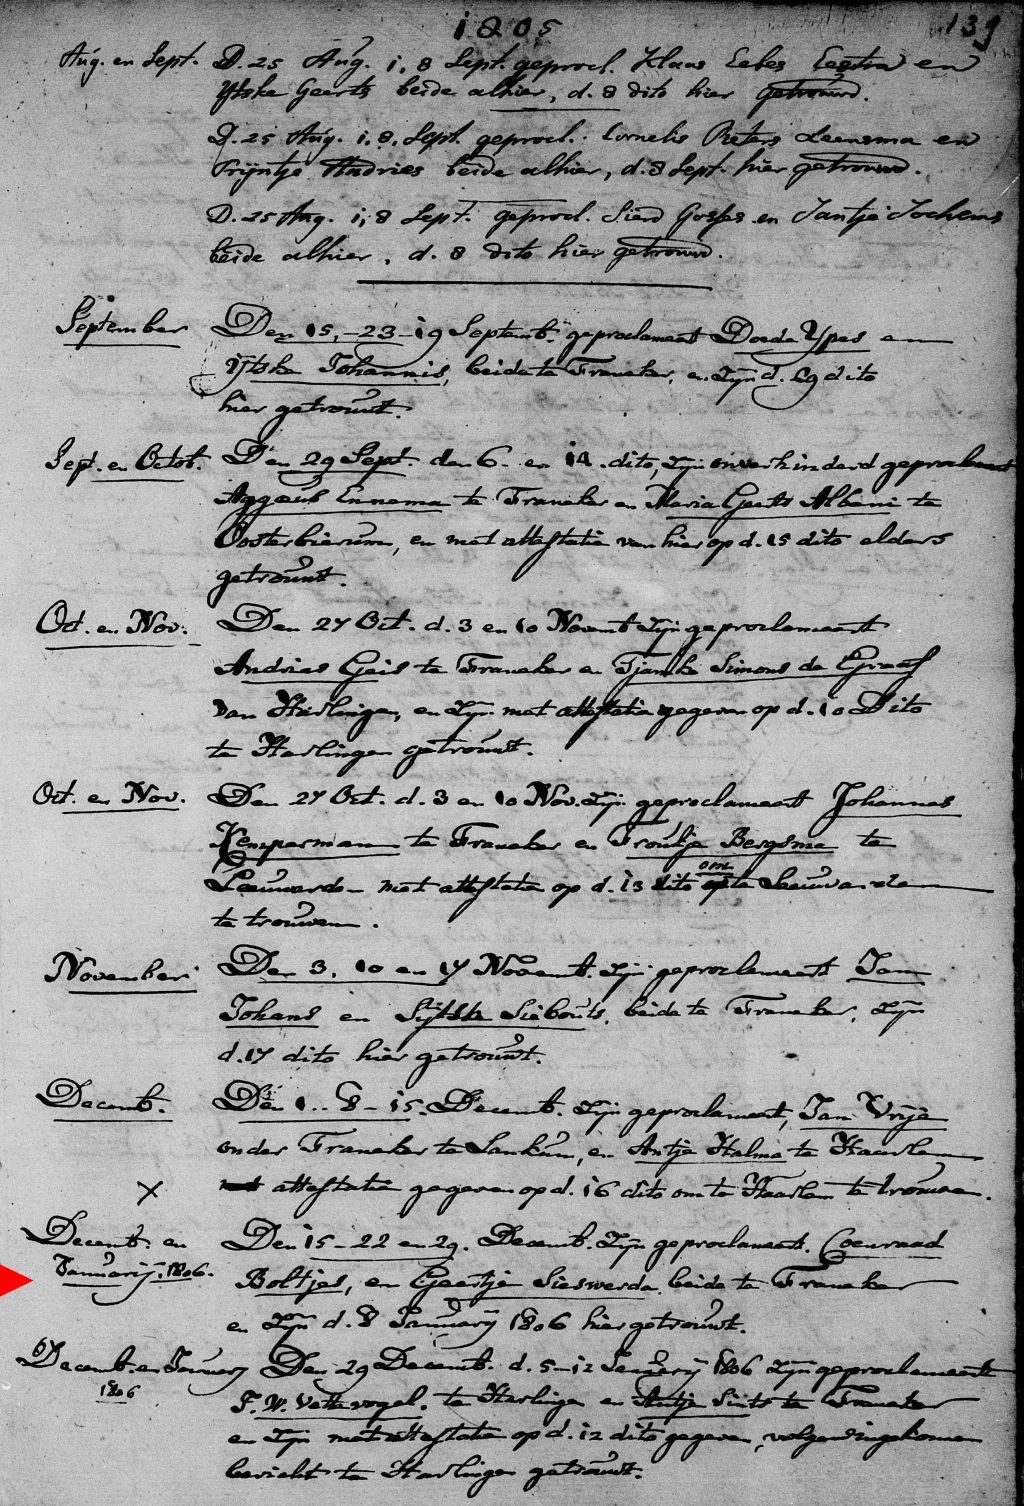 1805
139
Aug. en Sept. D. 25 Aug. 1, 8 Sept. geprocl. Klaas Eebes Eestra en
Ytske Geerts beide alhier, d. 8 dito hier getrouwd.
D. 25 Aug. 1, 8, Sept. geprocl. Cornelis Pieters Leensma en
Trijntje Andries beide alhier, d. 8 Sept. hier getrouwd.
D. 25 Aug. 1, 8 Sept. geprocl. Sierd Gosses en Jantje Jochems
beide alhier, d. 8 dito hier getrouwd.
September Den 15, -23- 19 Septemb. geproclameert Doede Ypes en
Ytske Johannis, beide te Franeker, en zyn d. 29 dito
hier getrouwt.
Sept. en Octob. Den 29 Sept. den 6 en 14 dito, zyn onverhinderd geproclameert
Aggeus Ennema te Franeker en Maria Geerts Albani te
Oosterbierum, en met attestatie van hier op d. 15 dito elders
getrouwt.
Oct. en Nov. Den 27 Oct. d. 3 en 10 Novemb zyn geproclameert
Andries Geis te Franeker en Tjamke Simons de Graaf
van Harlingen, en zyn met attestatie gegeven op d. 10 Dito
te Harlingen getrouwt.
Oct. en Nov. Den 27 Oct. d. 3 en 10 Nov. zyn geproclameert Johannes
Kemperman te Franeker en Froukje Bergsma te
Leeuwarden met attestatie op d. 13 dito om te Leeuwarden
te trouwen.
November Den 3, 10 en 17 Novemb. zyn geproclameert Jan
Johans en Sijtske Siebouts, beide te Franeker, zyn
d. 17 dito hier getrouwt.
Decemb. Den 1.. 8 - 15. Decemb. zyn geproclameert, Jan Vrije
onder Franeker te Lankum, en Antje Halma te Haarlem
X attestatie gegeven op d. 16 dito om te Haarlem te trouwen.
Decemb. en Den 15 - 22 en 29. Decemb. zyn geproclameert. Coenraad
Januarij. 1806. Boltjes, en Geertje Sieswerda beide te Franeker
en zyn d. 8 Januarij 1806 hier getrouwt.
Decemb. en January Den 29 Decemb. d. 5-12 Januarij 1806 zyn geproclameert
1806 F. W. Vettevogel. te Harlingen en Antje Sints te Franeker
en zyn met attestatie op d. 12 dito gegeven, volgens ingekomen
bericht te Harlingen getrouwt.